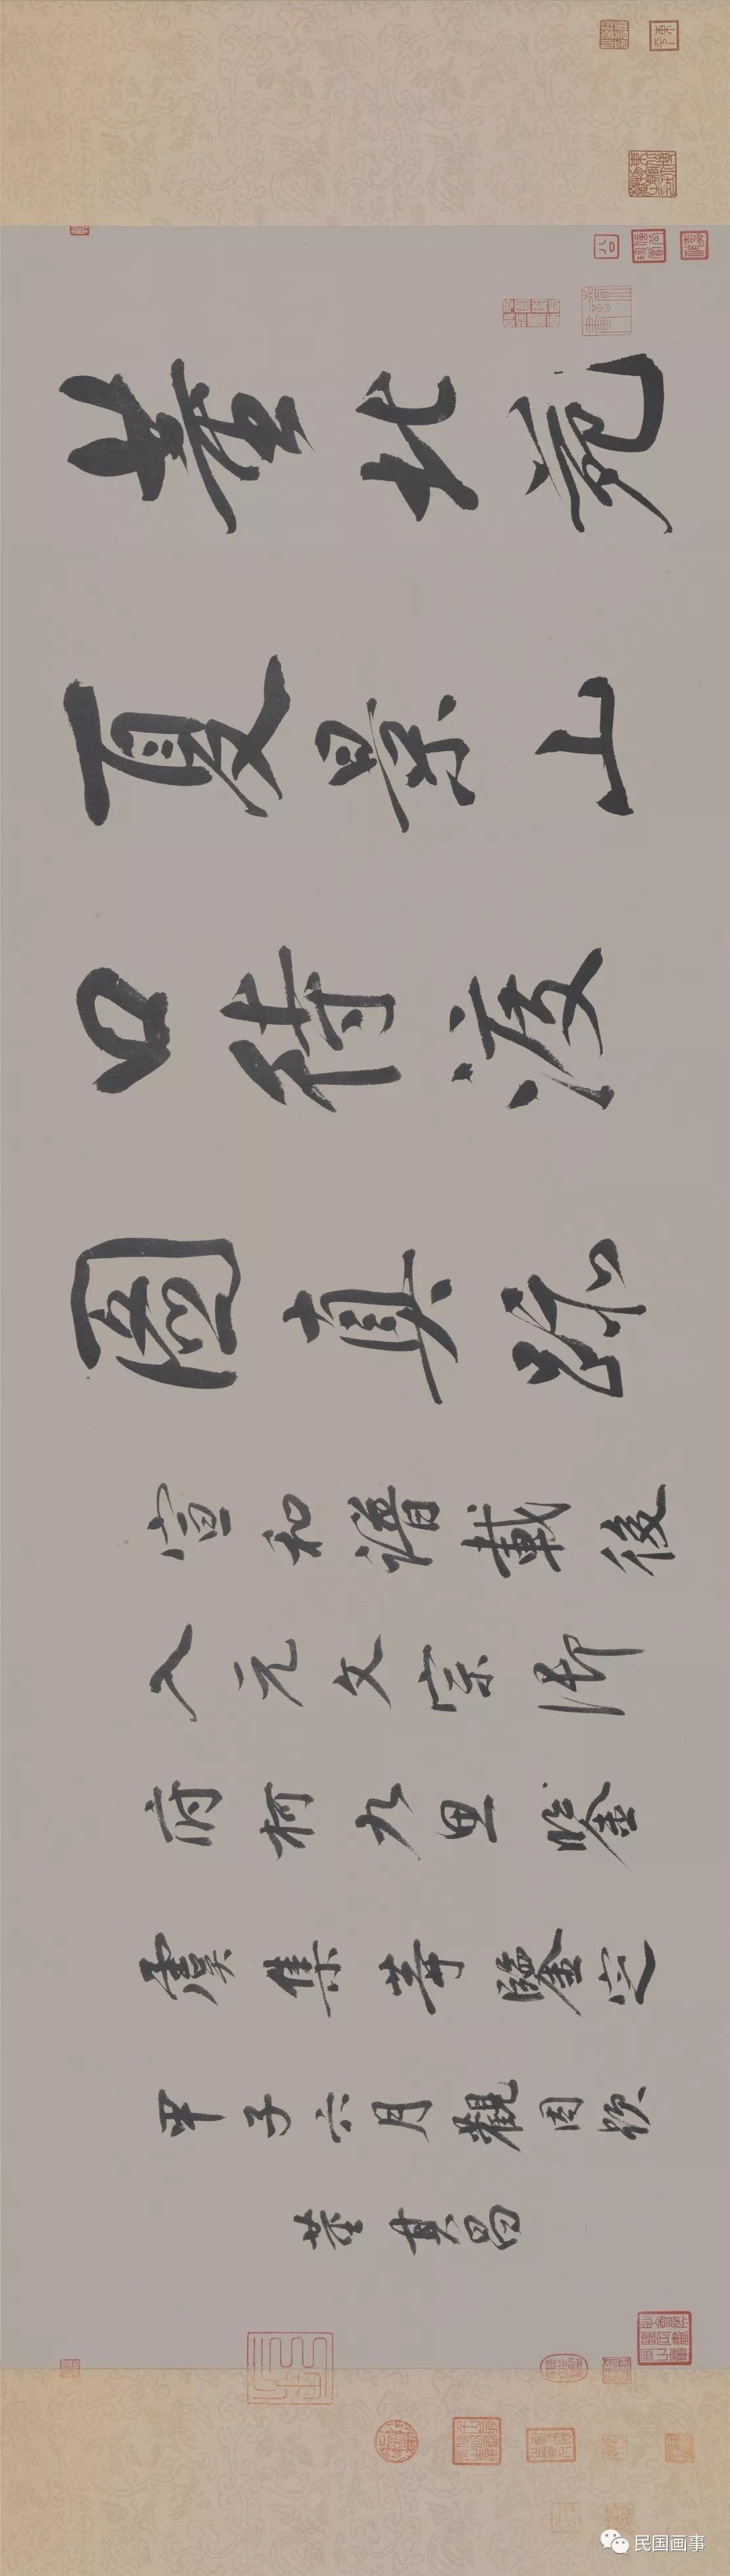 董北苑
夏景山
口待渡
圖真跡
宣和譜載後
入元文宗御
府柯九思鑒
虞集等鑒定
甲子六月觀因題
董其昌
民国画事